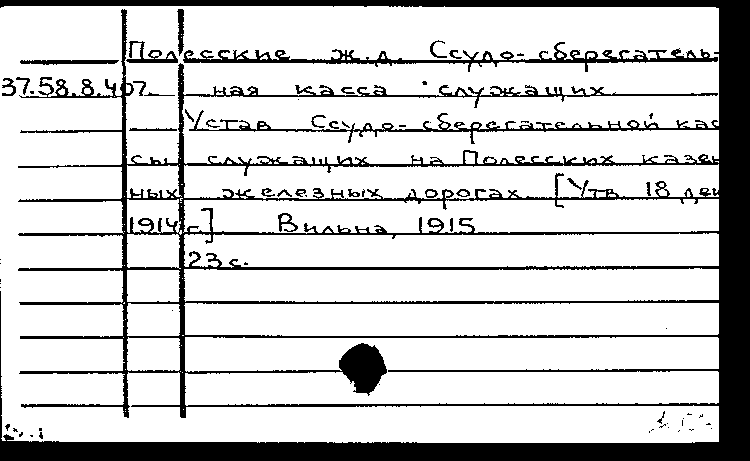 Полесские ж.д. Ссудо-сберегатель-
37.58.8.407. ная касса служащих
Устав Ссудо-сберегательной кас
сы служащих на Полесских казен
ных железных дорогах [Утв 18 дек
1914 г.] Вильна, 1915
23 с.